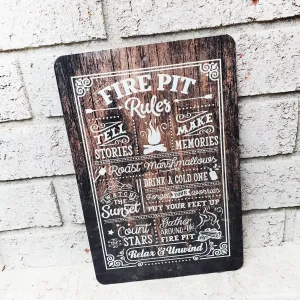 FIRE PIT
Rules
TELL
STORIES
MAKE
MEMORIES
Roast Marshmallows
DRINK A COLD ONE
Forget your worries
The Sunset
PUT YOUR FEET UP
Count
STARS
Gather
AROUND THE
FIRE PIT
Relax & Unwind